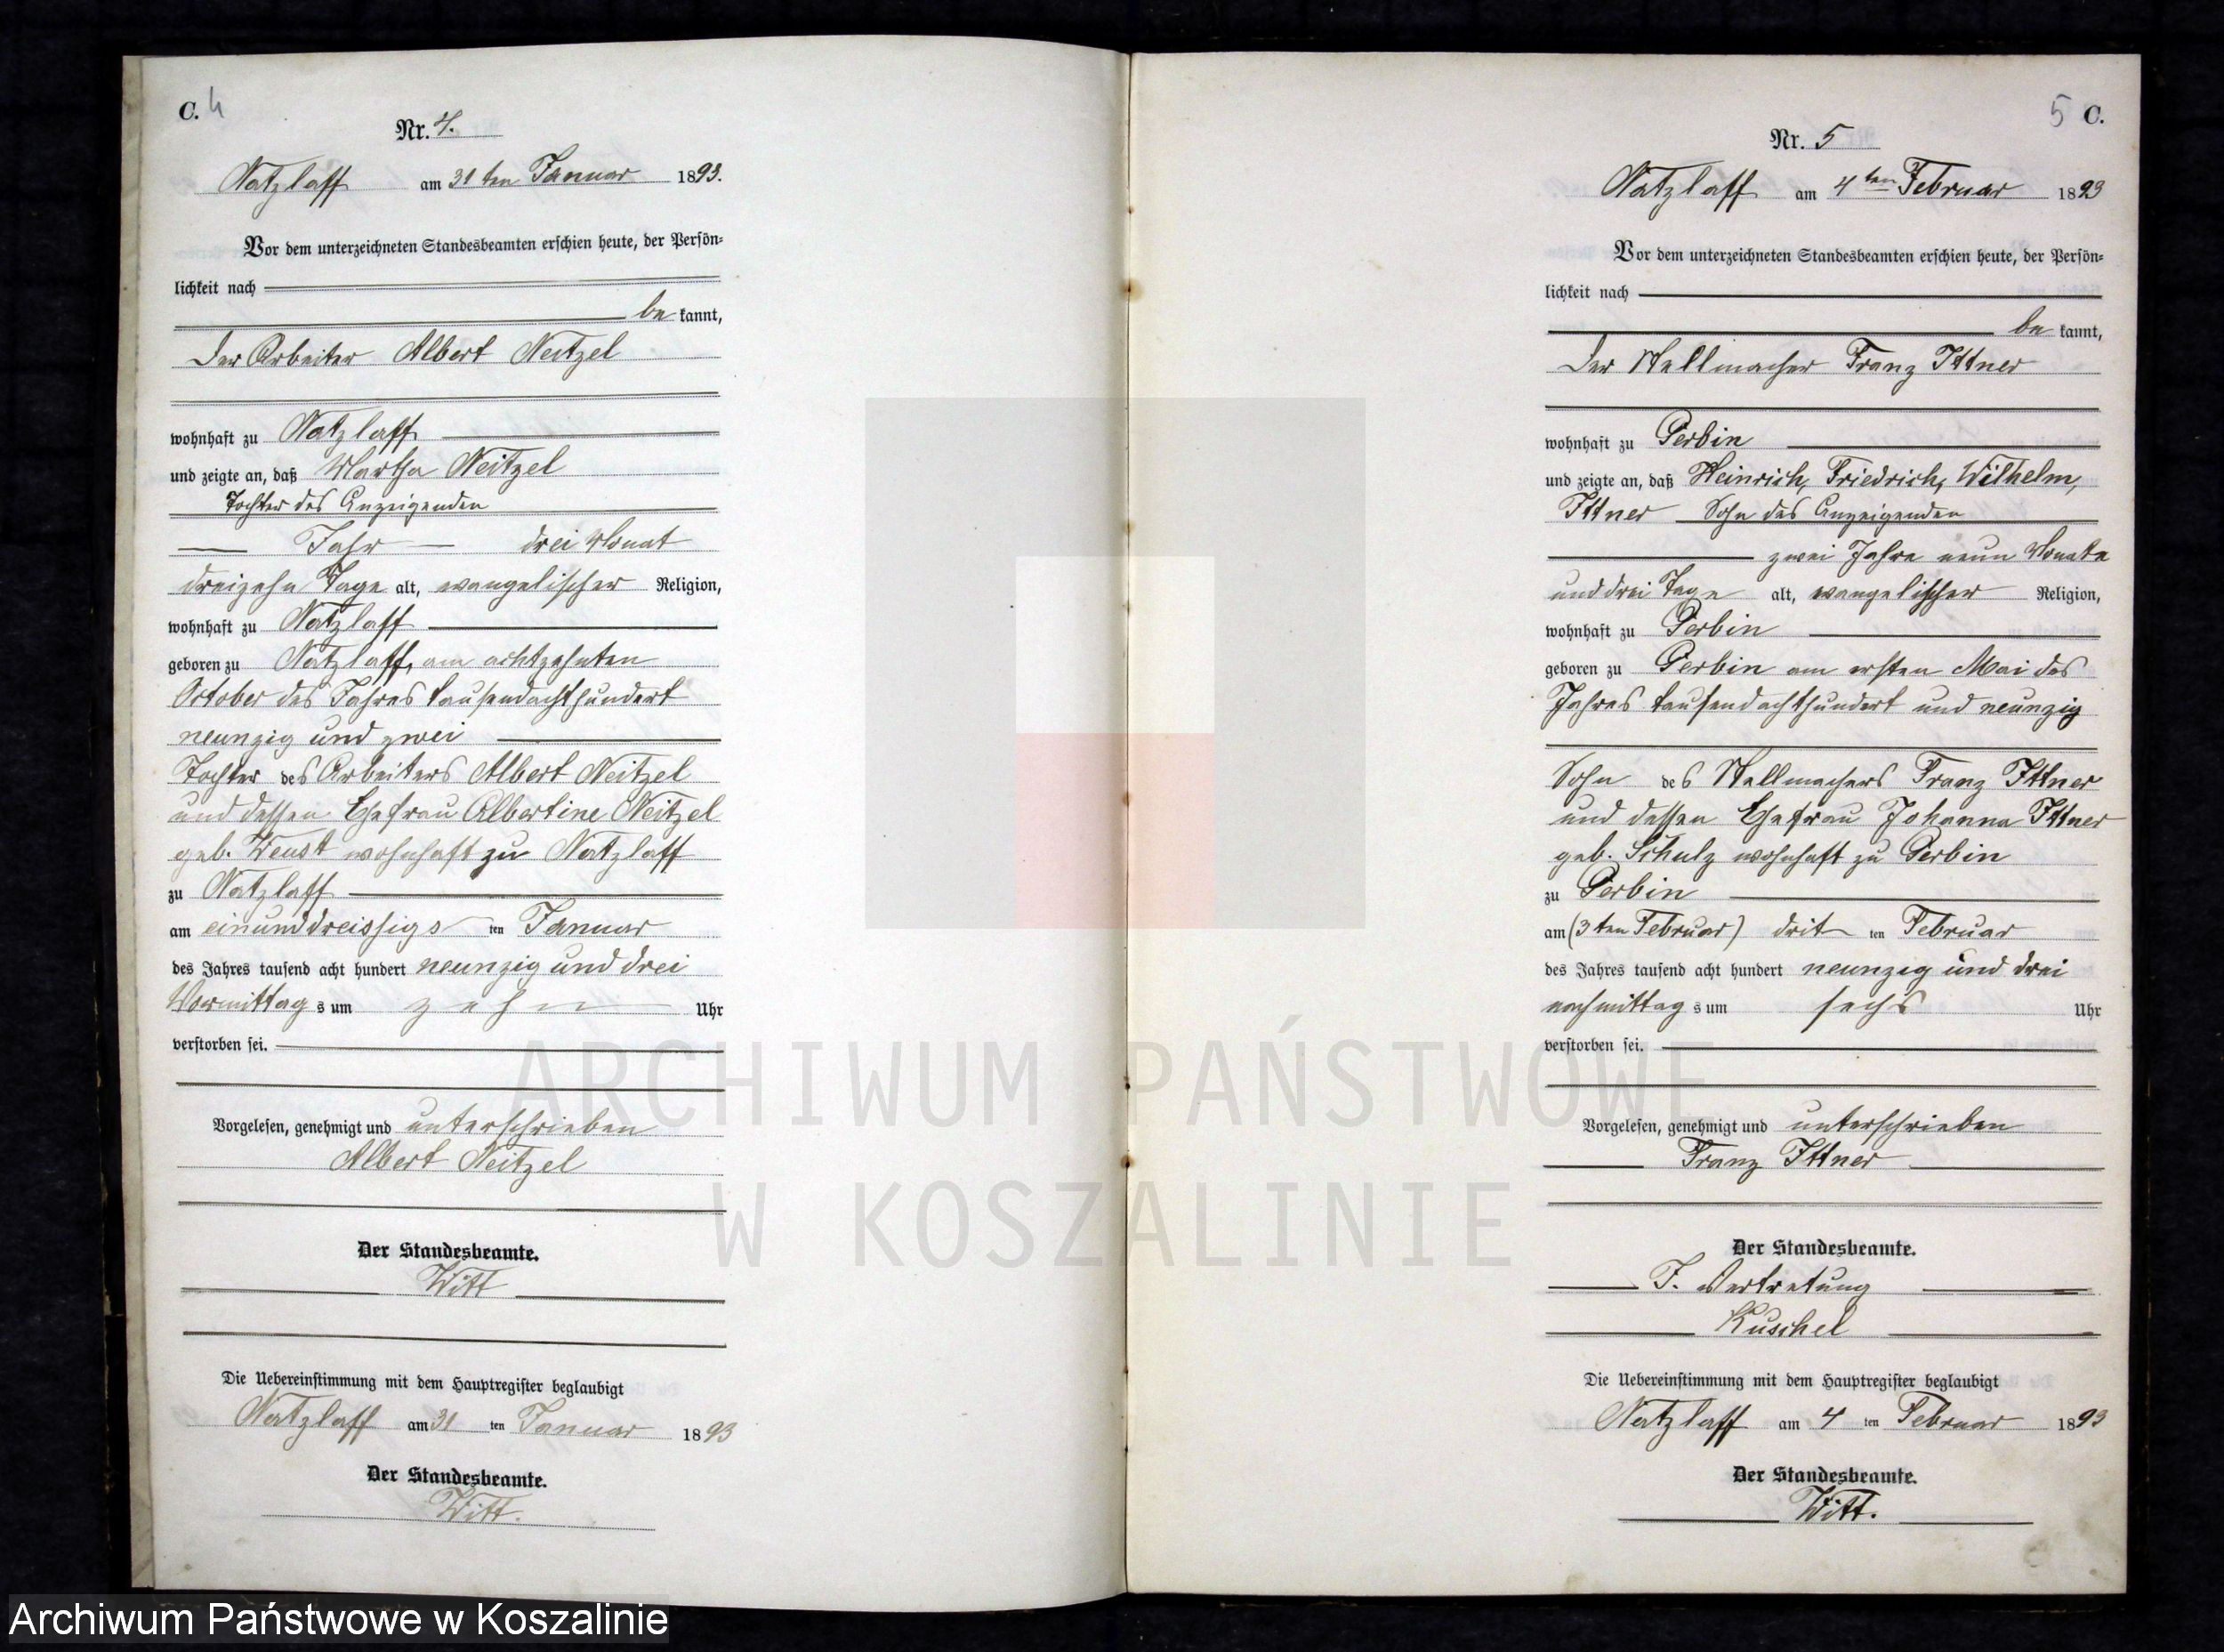 C. 4
Nr. 4.
Natzlaff am 31ten Januar 1893.
Vor dem unterzeichneten Standesbeamten erschien heute, der Persön-
lichkeit nach
be kannt,
Der Arbeiter Albert Neitzel
wohnhaft zu Natzlaff
und zeigte an, daß Martha Neitzel
Tochter des Anzeigenden
Jahr drei Monat
dreizehn Tage alt, evangelischer Religion,
wohnhaft zu Natzlaff
geboren zu Natzlaff, am achtzehnten
October des Jahres tausendachthundert
neunzig und zwei
Tochter des Arbeiters Albert Neitzel
und dessen Ehefrau Albertine Neitzel
geb. wohnhaft zu Natzlaff
zu Natzlaff
am einunddreissigs ten Januar
des Jahres tausend acht hundert neunzig und drei
Vormittag s um zehn Uhr
verstorben sei.
Vorgelesen, genehmigt und unterschrieben
Albert Neitzel
Der Standesbeamte.
Witt
Die Uebereinstimmung mit dem Hauptregister beglaubigt
Natzlaff am 31 ten Januar 1893
Der Standesbeamte.
Witt.
5 C.
Nr. 5
Natzlaff am 4ten Februar 1893
Vor dem unterzeichneten Standesbeamten erschien heute, der Persön-
lichkeit nach
be kannt,
Der Stellmacher Franz Ittner
wohnhaft zu Perbin
und zeigte an, daß Heinrich, Friedrich, Wilhelm,
Ittner Sohn des Anzeigenden
zwei Jahre neun Monate
und drei Tage alt, evangelischer Religion,
wohnhaft zu Perbin
geboren zu Perbin am ersten Mai des
Jahres tausendachthundert und neunzig
Sohn des Stellmachers Franz Ittner
und dessen Ehefrau Johanna Ittner
geb. Schulz wohnhaft zu Perbin
zu Perbin
am (3ten Februar) drit ten Februar
des Jahres tausend acht hundert neunzig und drei
nachmittag s um sechs Uhr
verstorben sei.
Vorgelesen, genehmigt und unterschrieben
Franz Ittner
Der Standesbeamte.
I. Vertretung
Kuschel
Die Uebereinstimmung mit dem Hauptregister beglaubigt
Natzlaff am 4 ten Februar 1893
Der Standesbeamte.
Witt.
ARCHIWUM PAŃSTWOWE
W KOSZALINIE
Archiwum Państwowe w Koszalinie